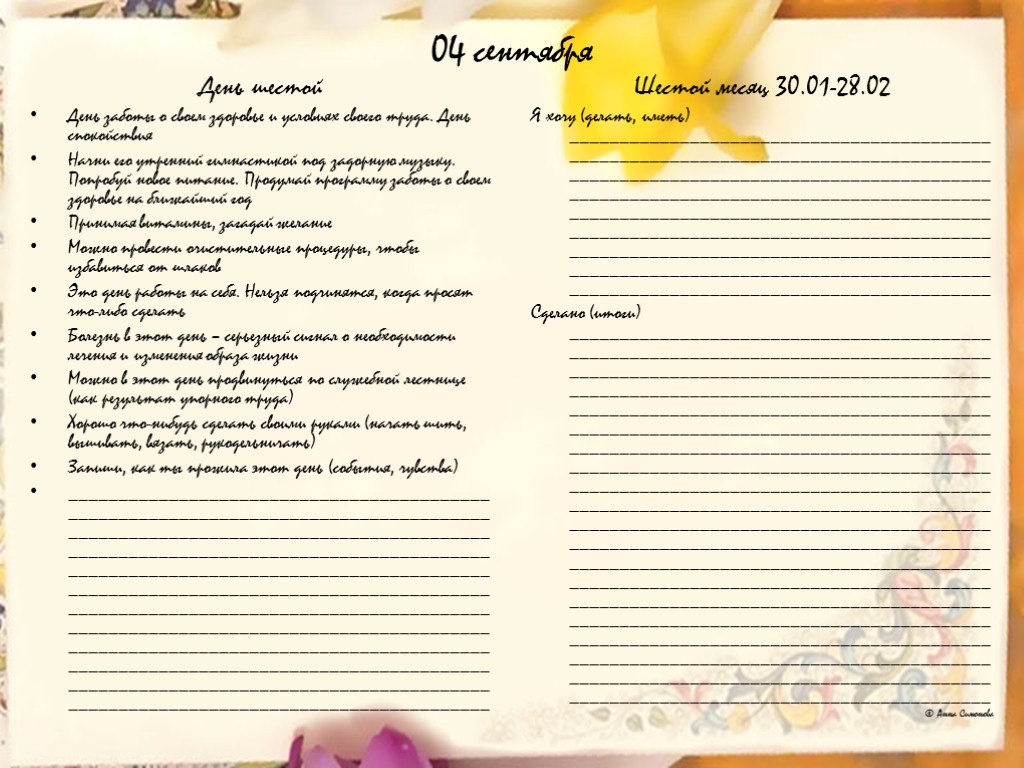 04 сентября
День шестой
• День заботы о своем здоровье и условиях своего труда. День
спокойствия
• Начни его утренний гимнастикой под задорную музыку.
Попробуй новое питание. Продумай программу заботы о своем
здоровье на ближайший год
• Принимая витамины, загадай желание
• Можно провести очистительные процедуры, чтобы
избавиться от шлаков
• Это день работы на себя. Нельзя подчинятся, когда просят
что-либо сделать
• Болезнь в этот день – серьезный сигнал о необходимости
лечения и изменения образа жизни
• Можно в этот день продвинуться по служебной лестнице
(как результат упорного труда)
• Хорошо что-нибудь сделать своими руками (начать шить,
вышивать, вязать, рукодельничать)
• Запиши, как ты прожила этот день (события, чувства)
Шестой месяц 30.01-28.02
Я хочу (делать, иметь)
Сделано (итоги)
© Анна Симонова